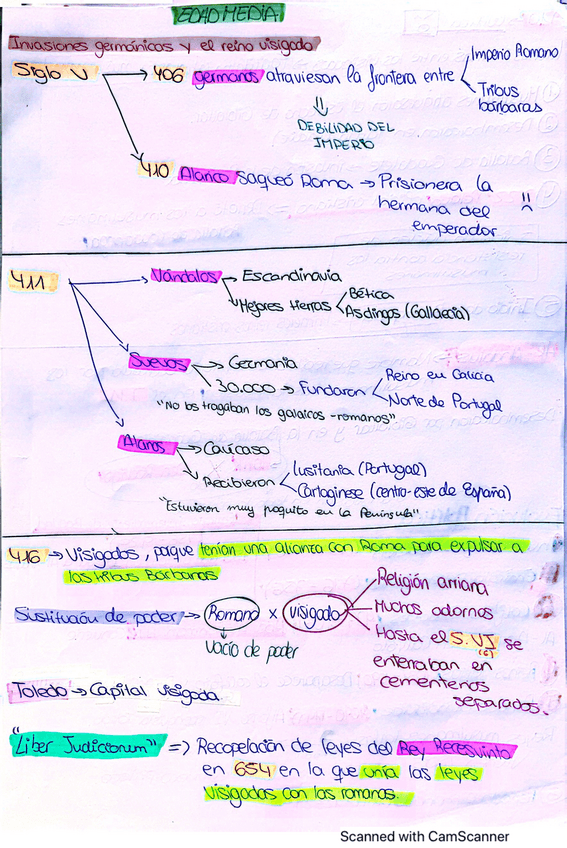 EDAD MEDIA
Invasiones germánicas y el reino visigodo
Siglo V → 406 germanos atraviesan la frontera entre
Imperio Romano
Tribus
bárbaras
⇓
DEBILIDAD DEL
IMPERIO
410 Alarico saqueó Roma → Prisionera la
hermana del
emperador
411
Vándalos → Escandinavia
Mejores tierras
Bética
Asdingos (Gallaecia)
Suevos → Germania
30.000 → Fundaron
Reino en Galicia
Norte de Portugal
"No los tragaban los galaicos-romanos"
Alanos → Caúcaso
Recibieron
Lusitania (Portugal)
Cartaginese (centro-este de España)
"Estuvieron muy poquito en la Península"
416 → Visigodos, porque tenían una alianza con Roma para expulsar a
las tribus Bárbaras
Sustitución de poder → Romano x visigodo
Vacío de poder
Religión arriana
Muchos adornos
Hasta el S.VI se
(6)
enterraban en
cementerios
separados.
Toledo → Capital visigoda.
"Liber Judiciorum" => Recopilación de leyes del Rey Recesvinto
en 654 en la que unía las leyes
visigodas con las romanas.
Scanned with CamScanner